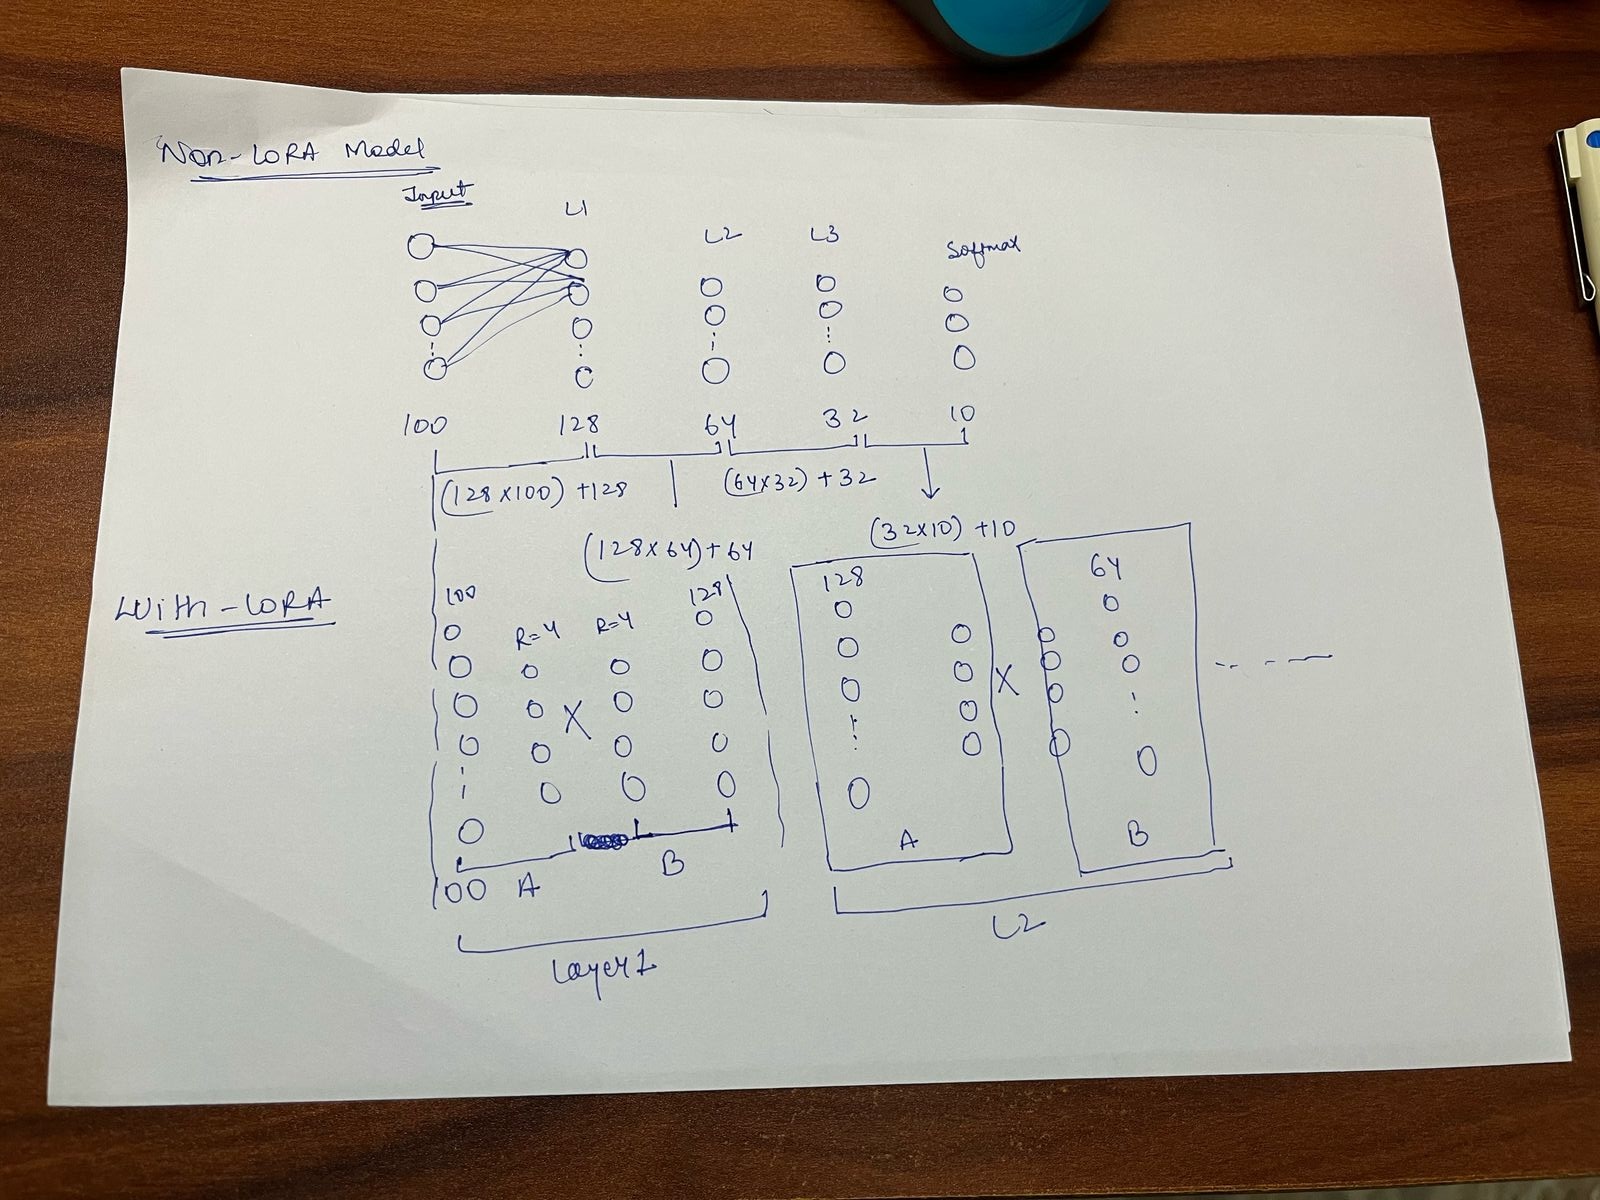 Non-LORA Model
Input
L1
L2
L3
Softmax
100
128
64
32
10
(128x100) +128
(64x32) +32
(128x64)+64
(32x10) +10
With-LORA
100
R=4
R=4
128
X
100
A
B
Layer1
128
A
X
64
B
L2